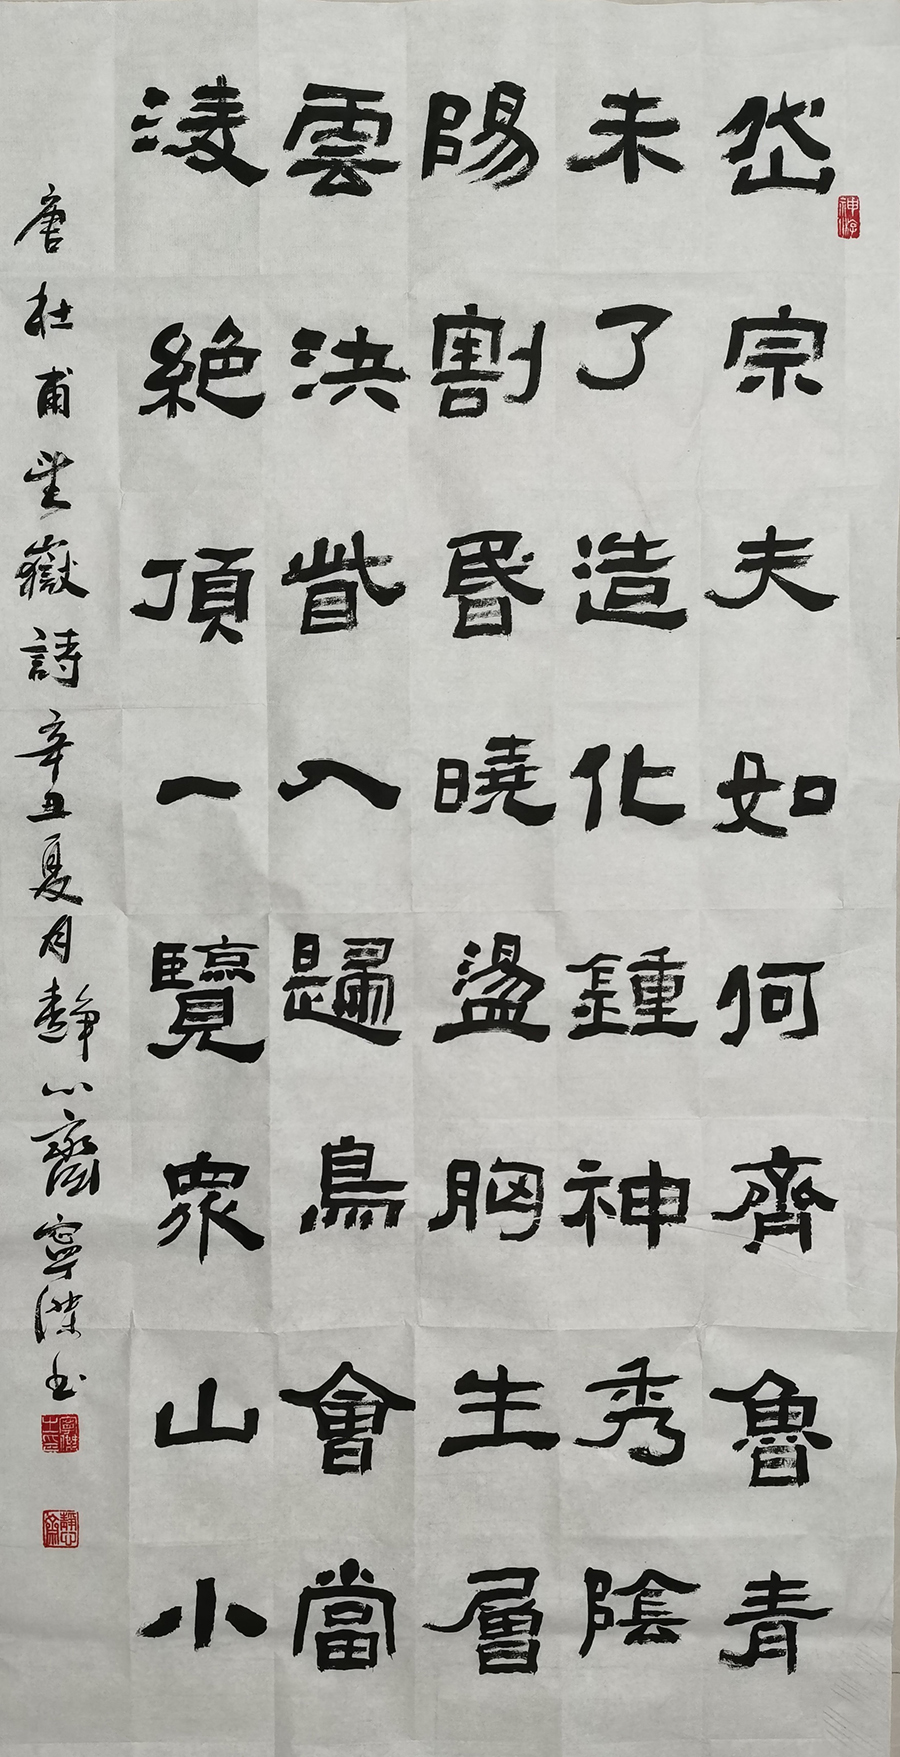 神游
岱宗夫如何齊魯青
未了造化鍾神秀陰
陽割昬曉盪胸生層
雲決眥入歸鳥會當
淩絶頂一覽眾山小
唐杜甫望嶽詩辛丑夏月靜心齋寧傑书
靜心齋